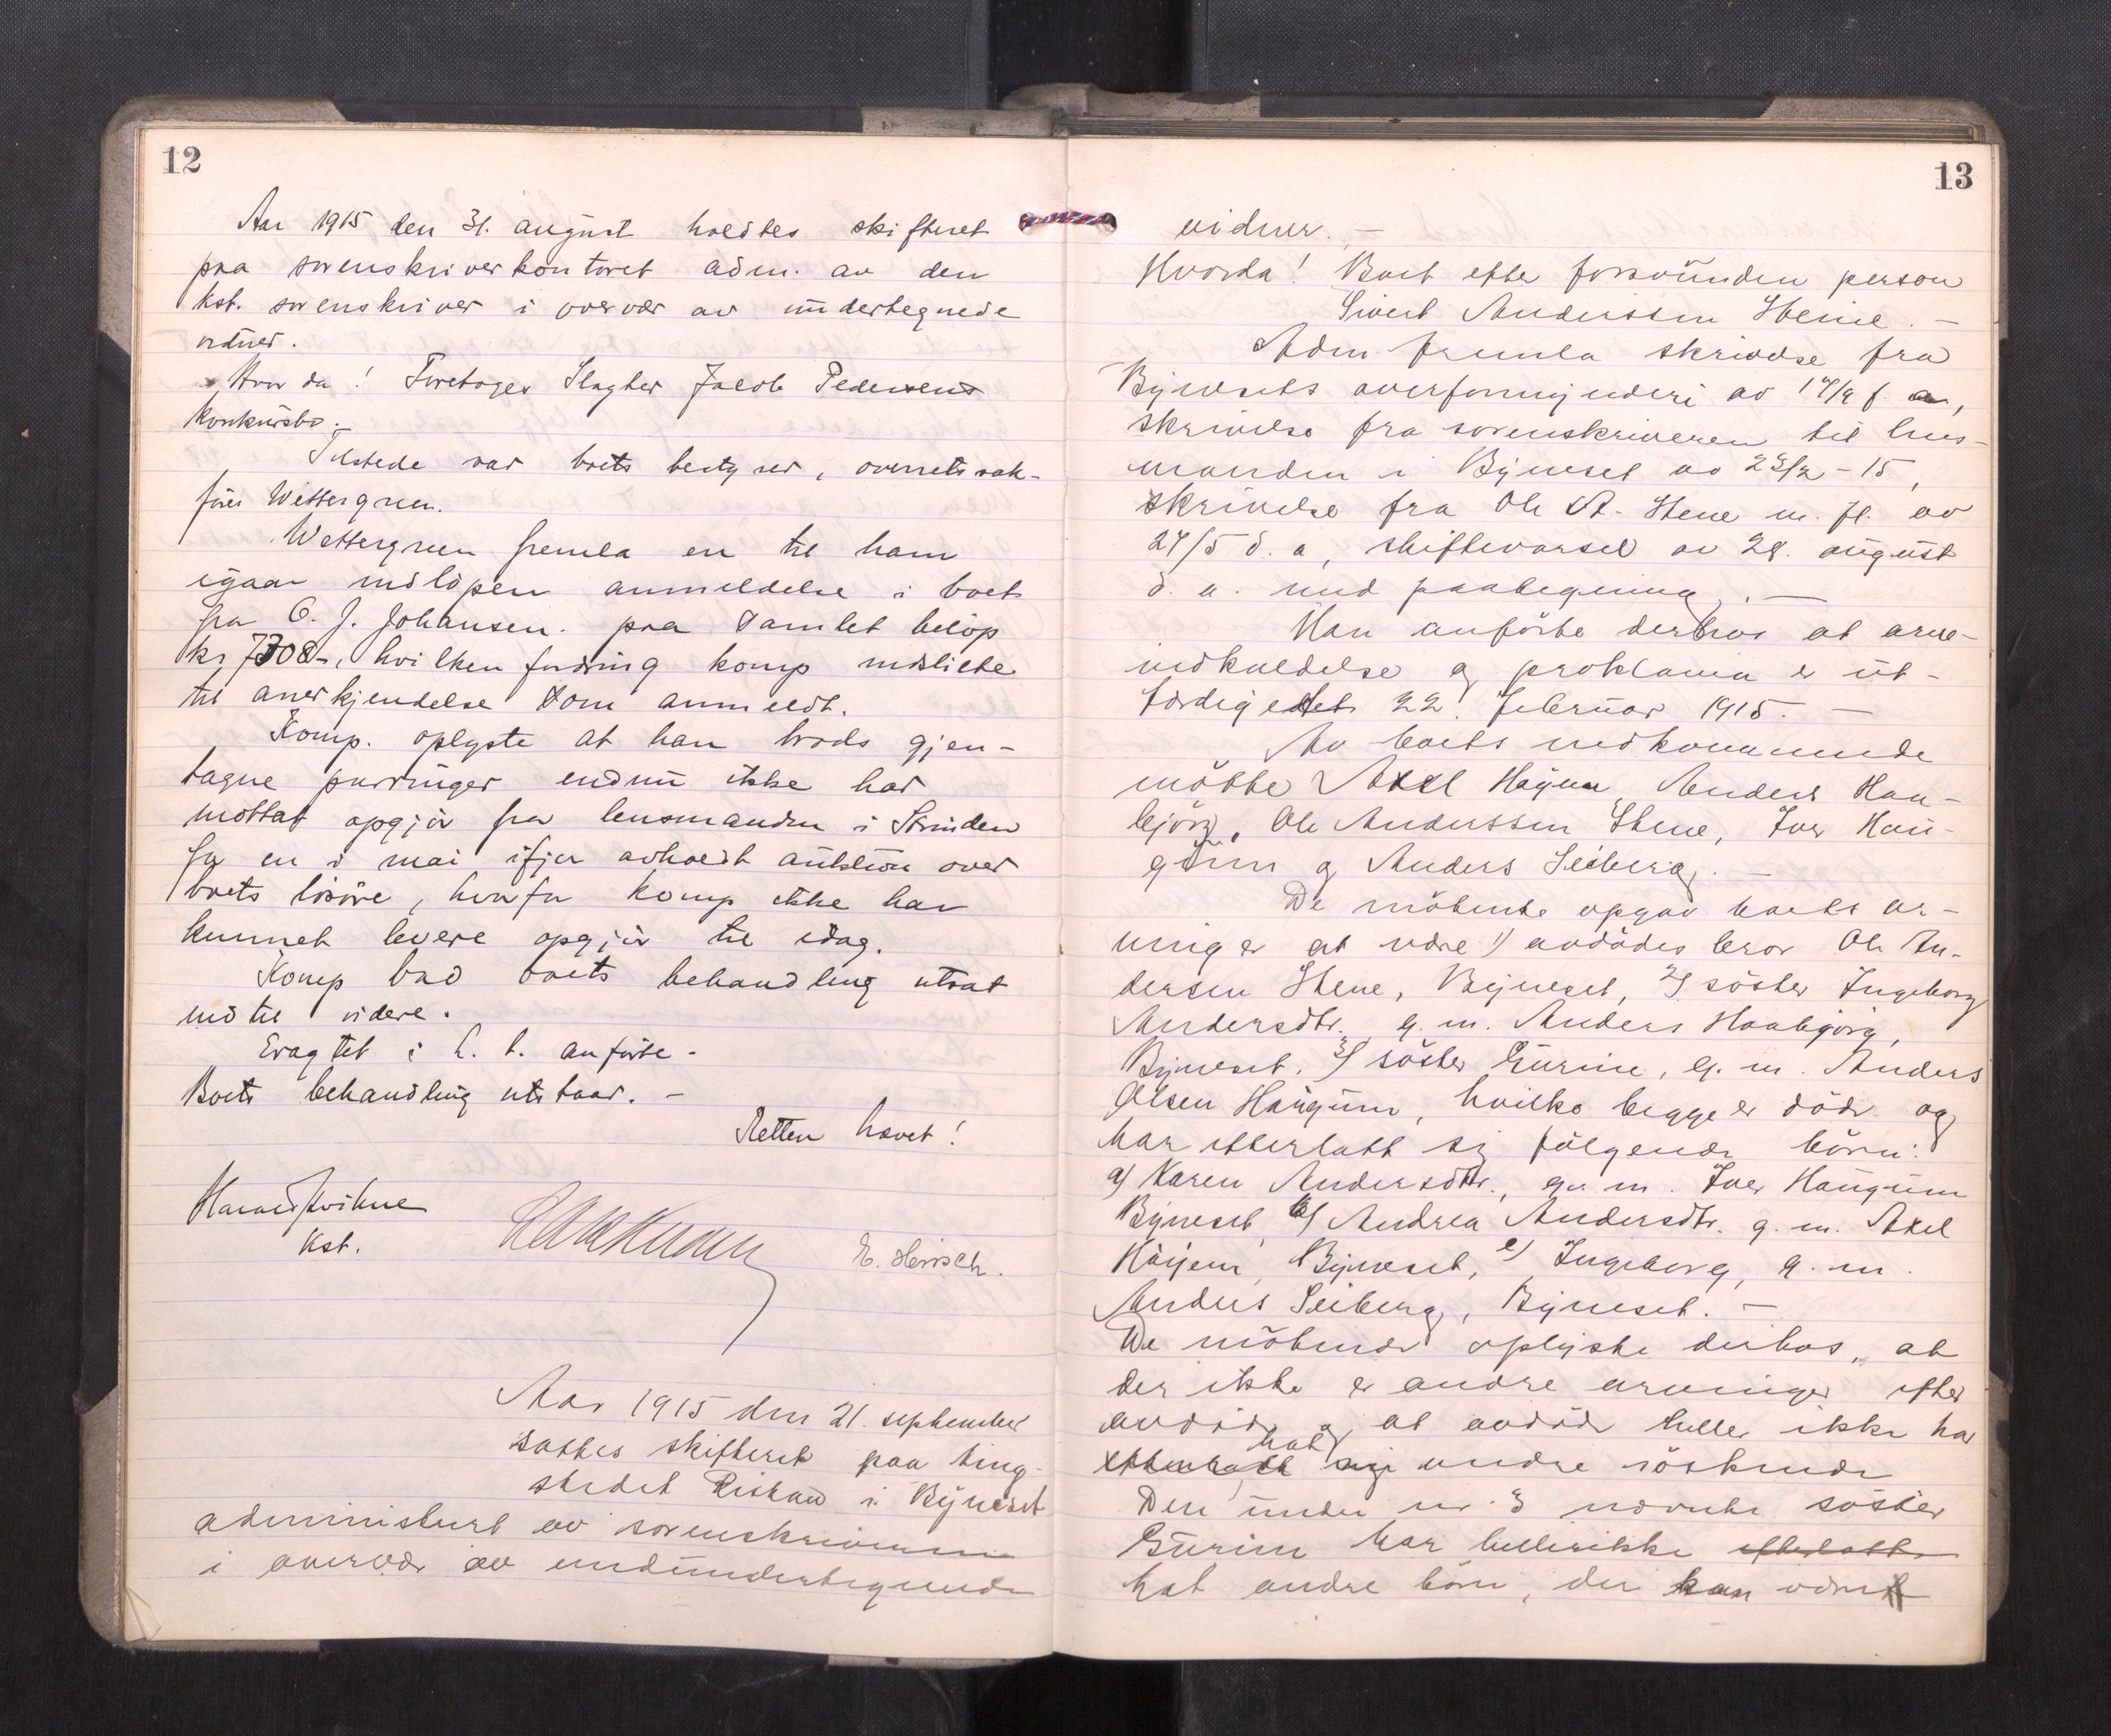 12
Aar 1915 den 31. august holdtes skifteret
paa sorenskriverkontoret adm. av den
kst. sorenskriver i overvær av undertegnede
vidner.
Hvor da! Foretoges Slagter Jacob Pedersens
konkursbo.-
Tilstede var boets bestyrer, overretssak-
fører Wettergreen.
Wettergreen fremla en til ham
igaar indløpen anmeldelse i boet
fra O. J. Johansen. paa samlet beløp
kr 7308-, hvilken fordring komp indstillte
til anerkjendelse som anmeldt.
Komp. oplyste at han trods gjen-
tagne purringer endnu ikke har
mottat opgjør fra lensmanden i Strinden
for en i mai ifjor avholdt auktion over
boets løsøre, hvorfor komp ikke har
kunnet levere opgjør til idag.
Komp bad boets behandling utsat
indtil videre.
Eragtet i h. t. anførte.
Boets behandling utstaar. -
Retten hævet!
kst.
E. Hirsch.
Aar 1915 den 21. september
sattes skifteret paa ting-
stedet Ristan i Bynæset
administrert av sorenskriveren
i overvær av undundertegnede
13
vidner. -
Hvorda! Boet efter forsvunden person
Sivert Anderssen Stene. -
Adm. fremla skrivelse fra
Bynæsets overformynderi av 17/9 f. a.,
skrivelse fra sorenskriveren til lens-
manden i Bynæset av 23/2 - 15,
skrivelse fra Ole A. Stene m. fl. av
27/5 d. a., skiftevarsel av 28. august
d. a. med paategning. -
Han anførte derhos at arve-
indkaldelse og proklama er ut-
færdigedet 22. februar 1915. -
Av boets vedkommende
møtte Axel Høyem, Anders Hau-
bjørg, Ole Anderssen Stene, Iver Hau-
gum og Anders Leiberg. -
De møtende opgav boets ar-
vinger at være 1) avdødes bror Ole An-
dersen Stene, Bynæset, 2) søster Ingeborg
Andersdtr. g. m. Anders Haubjørg,
Bynæset, 3) søster Gurine, g. m. Anders
Olsen Haugum, hvilke begge er døde og
har efterlatt sig følgende børn:
a) Karen Andersdtr., g. m. Iver Haugum
Bynæset, b) Andrea Andersdtr. g. m. Axel
Høyem, Bynæset, c) Ingeborg, g. m.
Anders Leiberg, Bynæset. -
De møtende oplyste derhos, at
der ikke er andre arvinger efter
avdøde og at avdøde heller ikke har
hat
efterlatt sig andre søskende
Den under nr. 3 nævnte søster
Gurine har heller ikke efterlatt
hat andre børn, der kan være